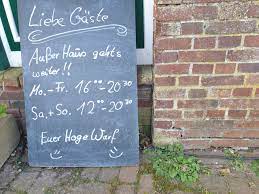 Liebe Gäste
Außer Haus geht's
weiter!!
Mo.-Fr. 16⁰⁰-20³⁰
Sa.+So. 12⁰⁰-20³⁰
Euer Hoge Warf